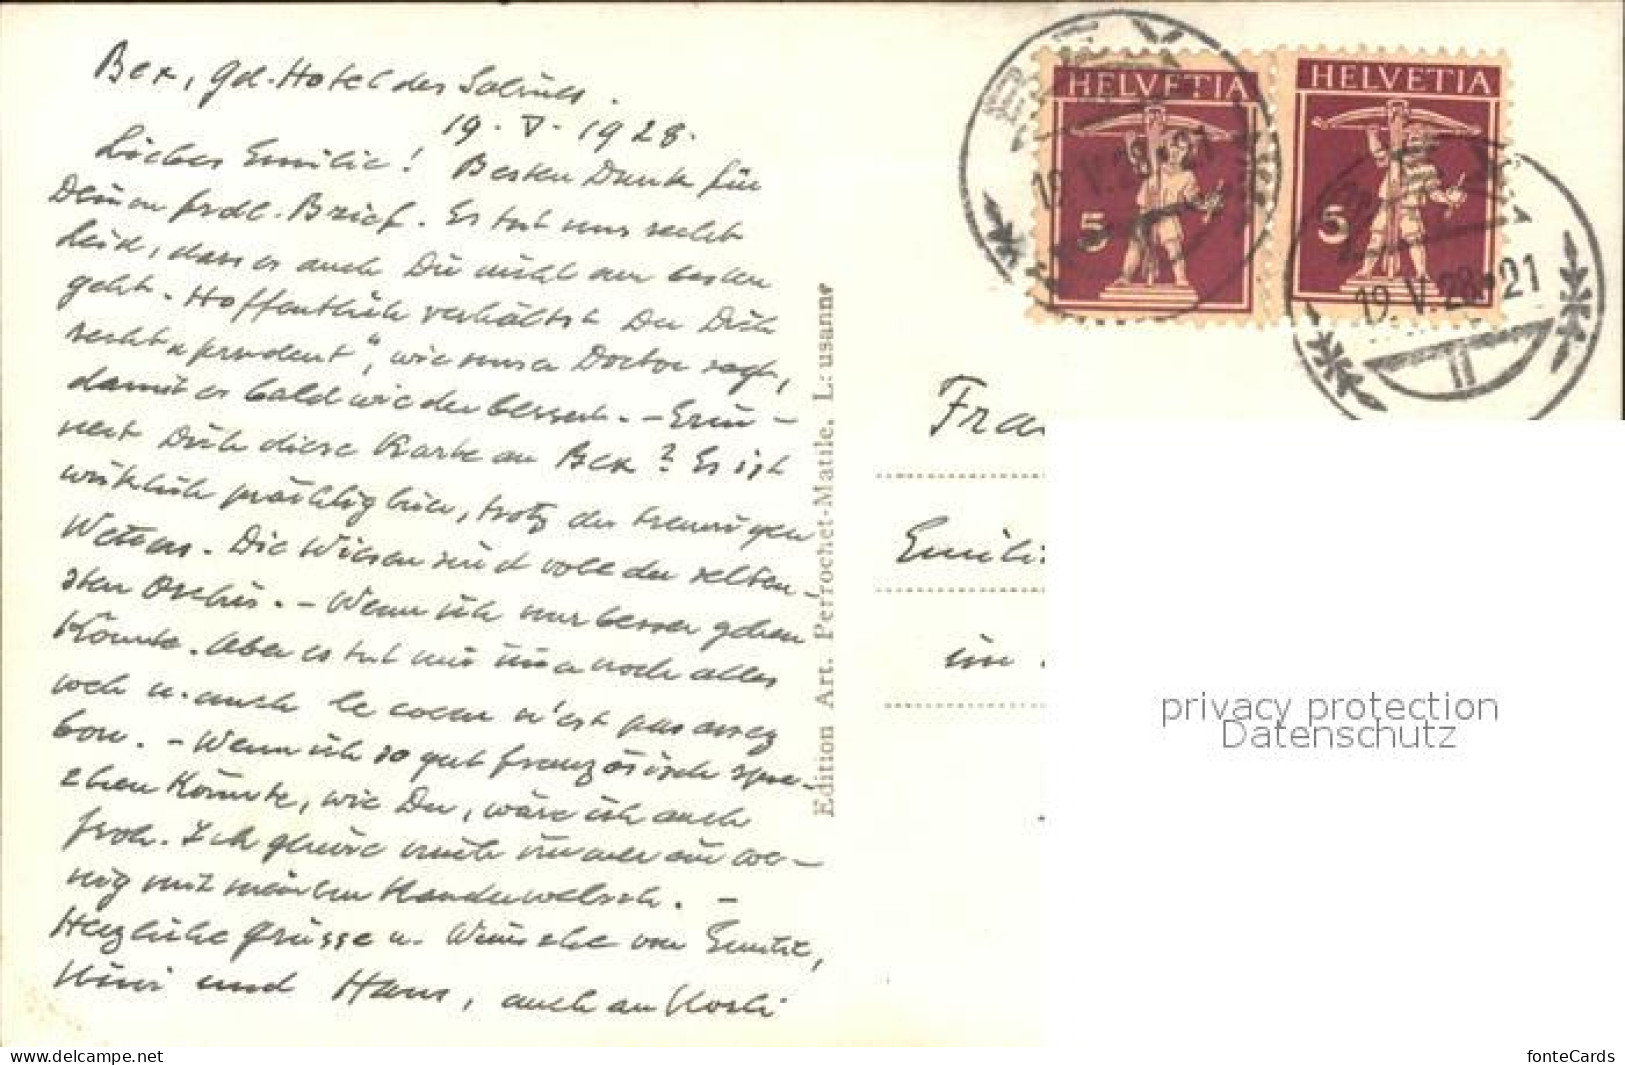 Bex, Gd. Hotel des Salines.
19. V. 1928.
Liebes Emilie! Besten Dank für
Deinen frdl. Brief. Es tut uns recht
Leid, dass es auch Dir nicht am besten
geht. Hoffentlich verhältst Du Dich
recht „prudent", wie unser Doctor sagt,
damit es bald wieder bessert. – Erin-
nert Dich diese Karte an Bex? Es ist
wirklich prächtig hier, trotz des traurigen
Wetters. Die Wiesen sind voll der selten-
sten Orchis. – Wenn ich nur besser gehen
könnte. Aber es tut mir immer noch alles
weh u. auch le coeur n'est pas assez
bon. – Wenn ich so gut französisch spre-
chen könnte, wie Du, wäre ich auch
froh. Ich geniere mich immer ein we-
nig mit meinem Kauderwelsch. –
Herzliche Grüsse u. Wünsche von
und Hans, auch an
Edition Art. Perrochet-Matile, Lausanne
HELVETIA
5
HELVETIA
5
19. V. 28-21
19. V. 28-21
II
Fra
Emili
in
privacy protection
Datenschutz
www.ansichtskarten-center.de
fonteCards